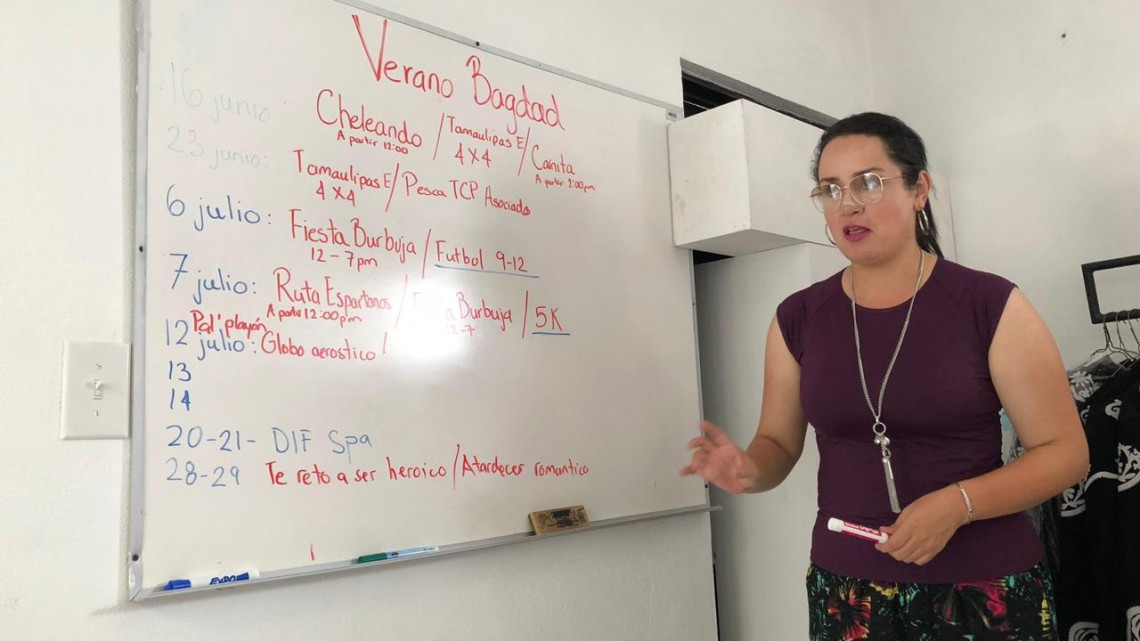 Verano Bagdad
16 junio
Cheleando / Tamaulipas E / Carnita
A partir 12:00 4X4 A partir 2:00pm
23 junio: Tamaulipas E / Pesca TCP Asociados
4X4
6 julio: Fiesta Burbuja / Futbol 9-12
12-7pm
7 julio: Ruta Espartanos / Burbuja / 5K
A partir 12:00pm
Pal' playón
12 julio: Globo aerostico /
13
14
20-21- DIF Spa
28-29 Te reto a ser heroico / Atardecer romantico
EXPO